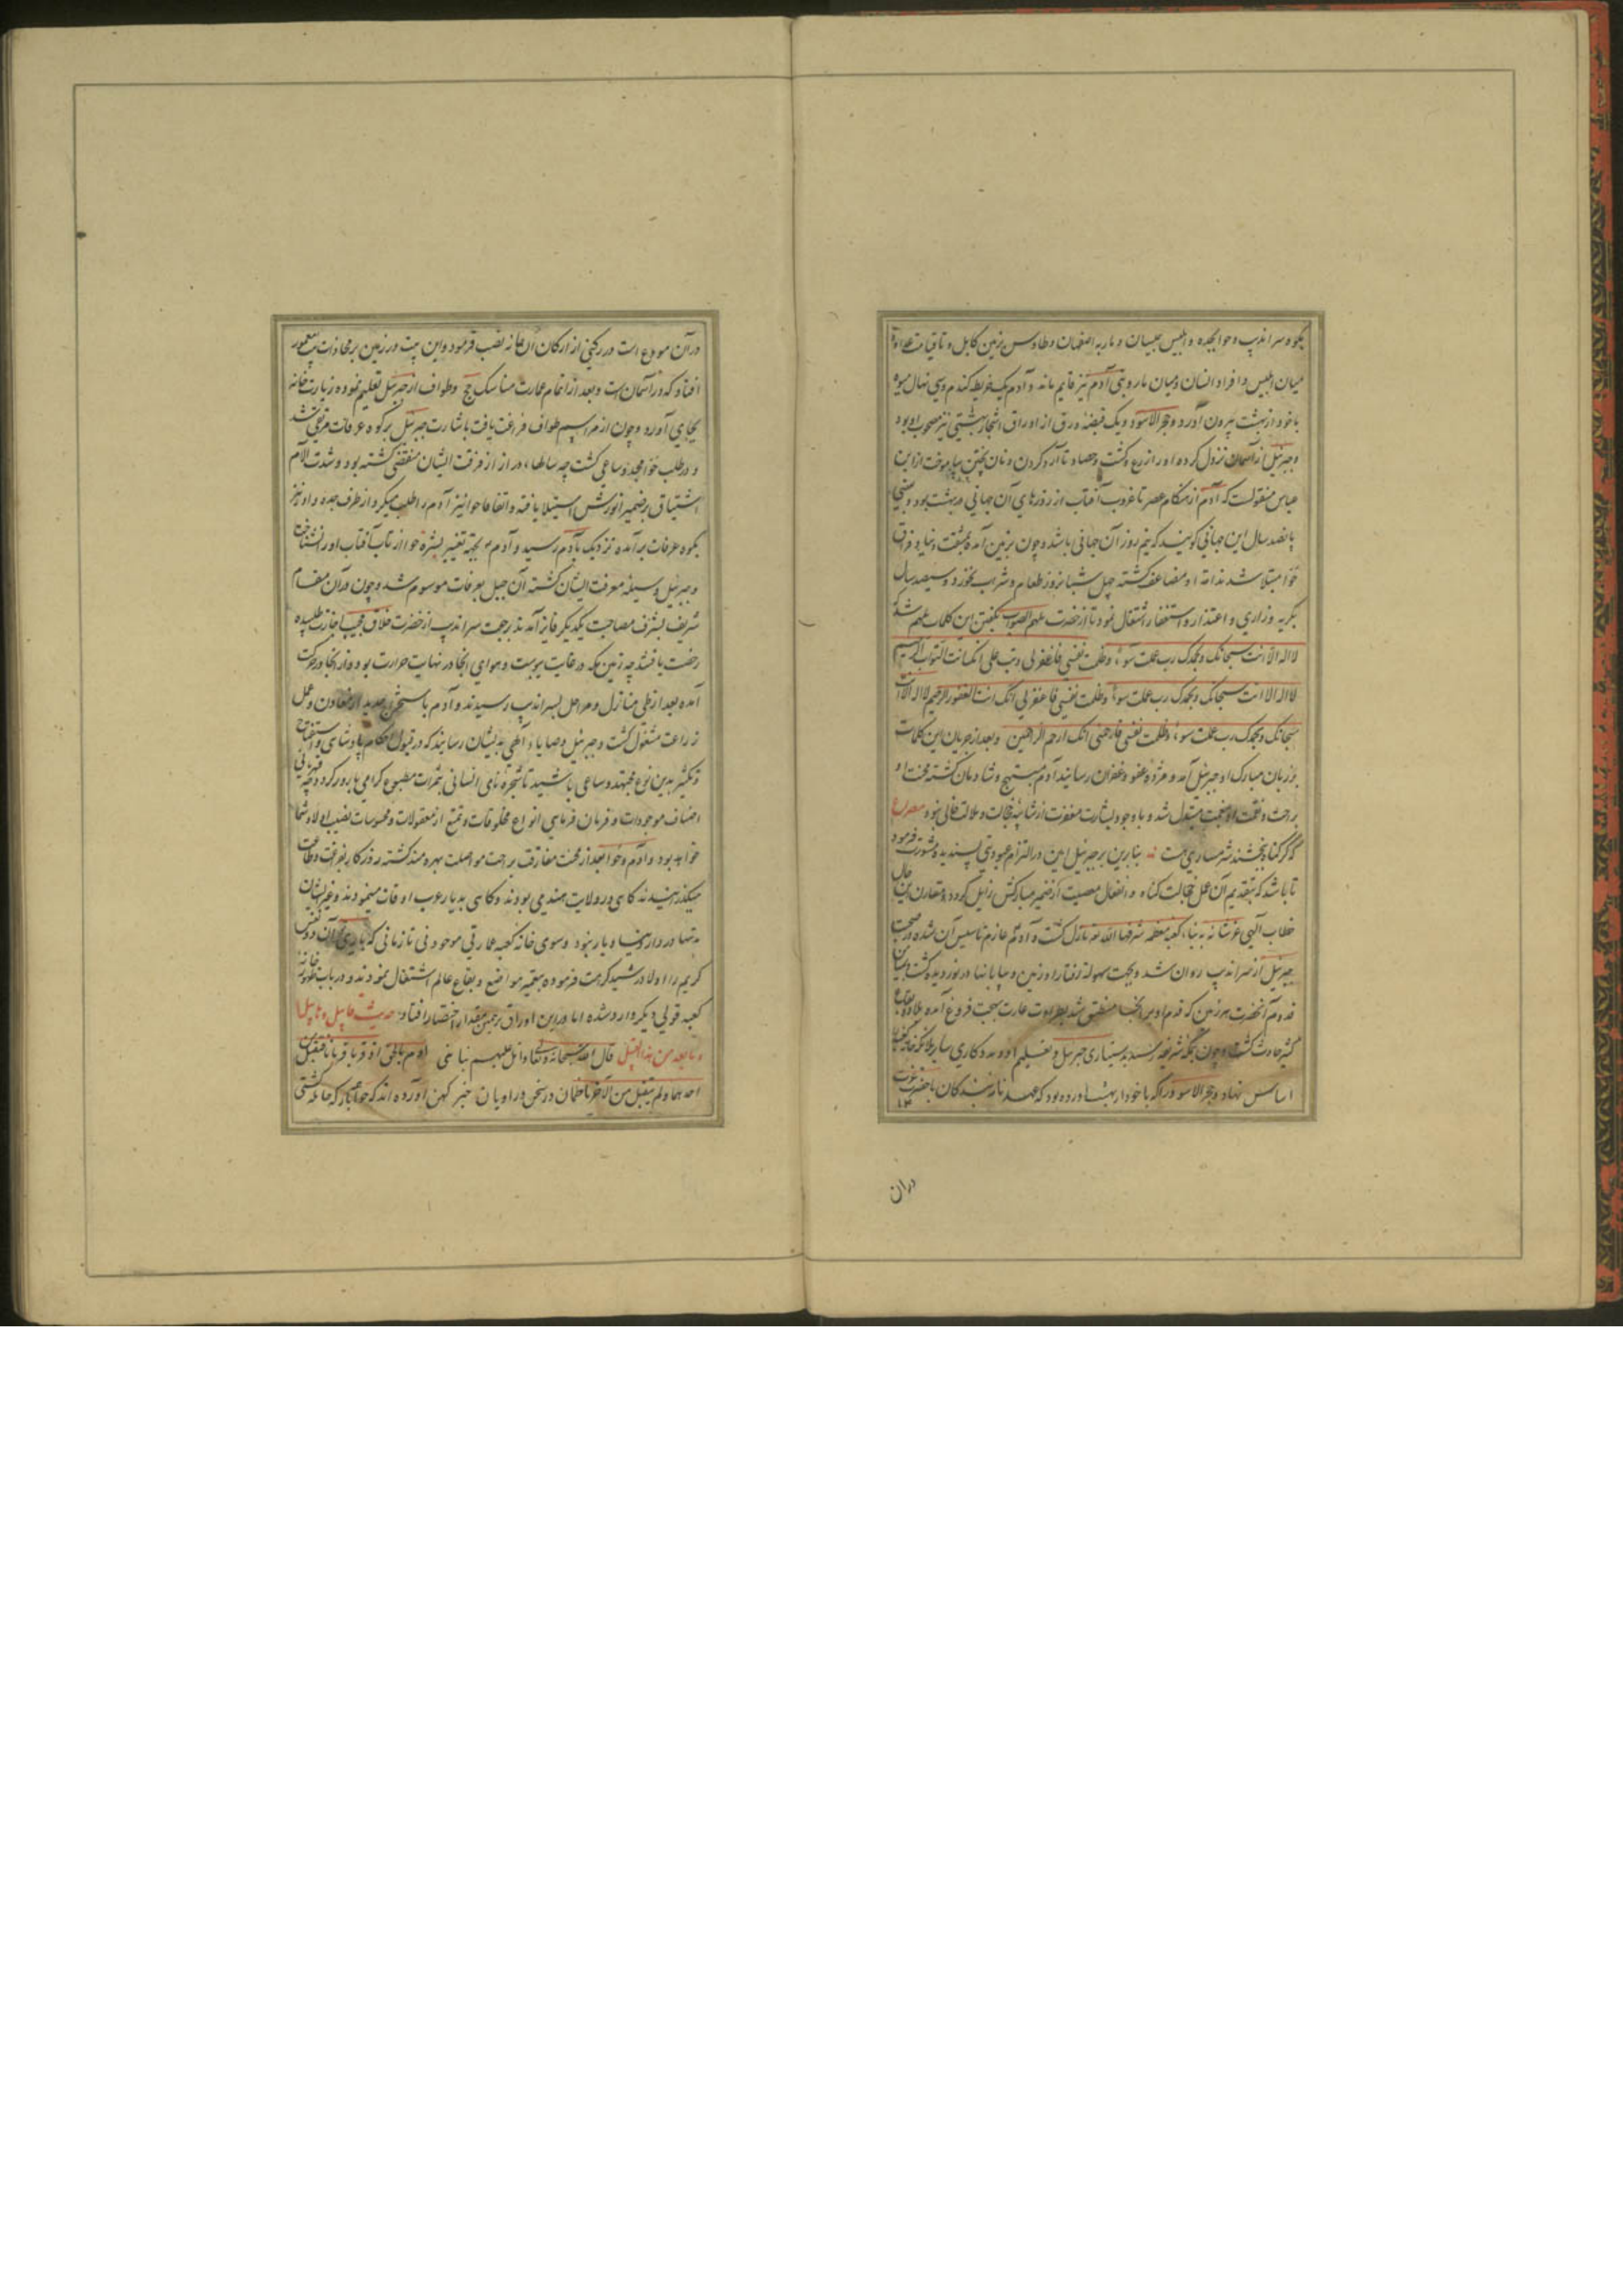 بکوه سراندیب و حوا بجده و ابلیس بیسان و مار به اصفهان و طاوس بزمین کابل و تا قیامت عداوة
میان ابلیس و افراد انسان و میان مار و بنی آدم نیز قایم ماند و آدم یک خریطه کندم و سی نهال میوه
با خود از بهشت بیرون آورد و حجر الاسود و یک قبضه ورق از اوراق اشجار بهشتی نیز مصحوب او بود
و جبرئیل از آسمان نزول کرده او را زرع و کشت و حصاد تا آرد کردن و نان پختن بیاموخت از ابن
عباس منقولست که آدم از هنکام عصر تا غروب آفتاب از روزهای آن جهانی در بهشت بود و
پانصد سال این جهانی کویند که نیم روز آن جهانی باشد و چون بزمین آمده بمشقت دنیا و فراق
حوا مبتلا شد ندامة او مضاعف کشته چهل شبانروز طعام و شراب نخورد و سیصد سال
بکریه و زاری و اعتذار و استغفار اشتغال نمود تا از حضرت ملهم الصواب بکفتن این کلمات ملهم شد که
لا اله الا انت سبحانک و بحمدک رب عملت سوءا و ظلمت نفسی فاغفر لی و تب علی انک انت التواب الرحیم
لا اله الا انت سبحانک و بحمدک رب عملت سوءا و ظلمت نفسی فاغفر لی انک انت الغفور الرحیم لا اله الا انت
سبحانک و بحمدک رب عملت سوءا و ظلمت نفسی فارحمنی انک ارحم الراحمین و بعد از جریان این کلمات
بر زبان مبارک او جبرئیل آمد و مژده عفو و غفران رسانید آدم مبتهج و شادمان کشته محنت او
براحت و نقمت او بنعمت مبتدل شد و با وجود بشارت مغفرت از شایبه خجالت و ملالت خالی نبود مصراع
که کر کناه بخشند شرمساری هست بنابرین بر جبرئیل امین در التزام عبودیتی پسندیده مشورت فرمود
تا باشد که بتقدیم آن عمل خجالت کناه و انفعال معصیت از ضمیر مبارکش زایل کردد و مقارن این حال
خطاب الهی عز شانه به بناء کعبه معظمه شرفها الله نازل کشت و آدم عازم تاسیس آن شده در صحبت
جبرئیل از سراندیب روان شد و بجهت سهولة رفتار او زمین و بیابانها در نوردیده کشت
قدوم آنحضرت هر زمین که قدم او بر آنجا شد بطراوت عمارت بهجت فروغ آمده
کثیر حادث کشت و چون بمکه شریفه رسید بدستیاری جبرئیل و تعلیم او و مددکاری سایر ملائکه خانه کعبه
اساس نهاد و حجر الاسود را که با خود از بهشت آورده بود که عهد نامه بندکان با حضرت عزت
دران
در آن مودع است در رکنی از ارکان آن خانه نصب فرمود و این بیت در زمین بر محاذات بیت المعمور
افتاد که در آسمان است و بعد از اتمام عمارت مناسک حج و طواف از جبرئیل تعلیم نموده زیارت خانه
بجای آورد و چون از مراسم طواف فراغت یافت باشارت جبرئیل بر کوه عرفات مرتقی شد
و در طلب حوا مجد و ساعی کشت چه سالهاء دراز از فرقت ایشان منقضی کشته بود و شدت آلام
اشتیاق بر ضمیر انورش استیلا یافته و اتفاقا حوا نیز آدم را طلب میکرد و از طرف جده او نیز
بکوه عرفات برآمده نزدیک بآدم رسید و آدم بجهة تغییر بشره حوا از تاب آفتاب او را نشناخت
و جبرئیل وسیلهٔ معرفت ایشان کشته آن جبل بعرفات موسوم شد و چون در آن مقام
شریف بشرف مصاحبت یکدیکر فایز آمدند رجعت سراندیب از حضرت خلاق مجیب اجازت طلبیده
رخصت یافتند چه زمین مکه در غایت یبوست و هوای آنجا در نهایت حرارت بود و از آنجا در حرکت
آمده بعد از طی منازل و مراحل بسراندیب رسیدند و آدم باستخراج حدید از معادن و عمل
زراعت مشغول کشت و جبرئیل وصایاء الهی بدیشان رسانید که در قبول احکام پادشاهی و استفتاح
و تکثیر بدین نوع مجتهد و ساعی باشید تا شجره نامی انسانی بثمرات مطبوع کرامی بارور کردد
اصناف موجودات و فرمان فرمایی انواع مخلوقات و تمتع از معقولات و محسوسات نصیب اولاد شما
خواهد بود و آدم و حوا بعد از محنت مفارقت براحت مواصلت بهره مند کشته روزکار بفراغت و طاعت
میکذرانیدند کاهی در ولایت هند می بودند و کاهی بدیار عرب اوقات میپیمودند و غیر ایشان
بتنها در دار دنیا دیار نبود و سوی خانه کعبه عمارتی موجود نی تا زمانی که باری آن دو نفس
کریم را اولاد رشید کرامت فرموده بتعمیر مواضع و بقاع عالم اشتغال نمودند و در باب ظهور خانه
کعبه قولی دیکر وارد شده اما درین اوراق بر همین مقدار اختصار افتاد حدیث قابیل و هابیل
و ما بعد من هذا القبیل قال الله سبحانه و تعالی و اتل علیهم نبا ابنی ادم بالحق اذ قربا قربانا فتقبل من
احدهما و لم یتقبل من الآخر ناظمان در سخن و راویان خبر کهن آورده اند که حوا هر بار که حامله کشتی